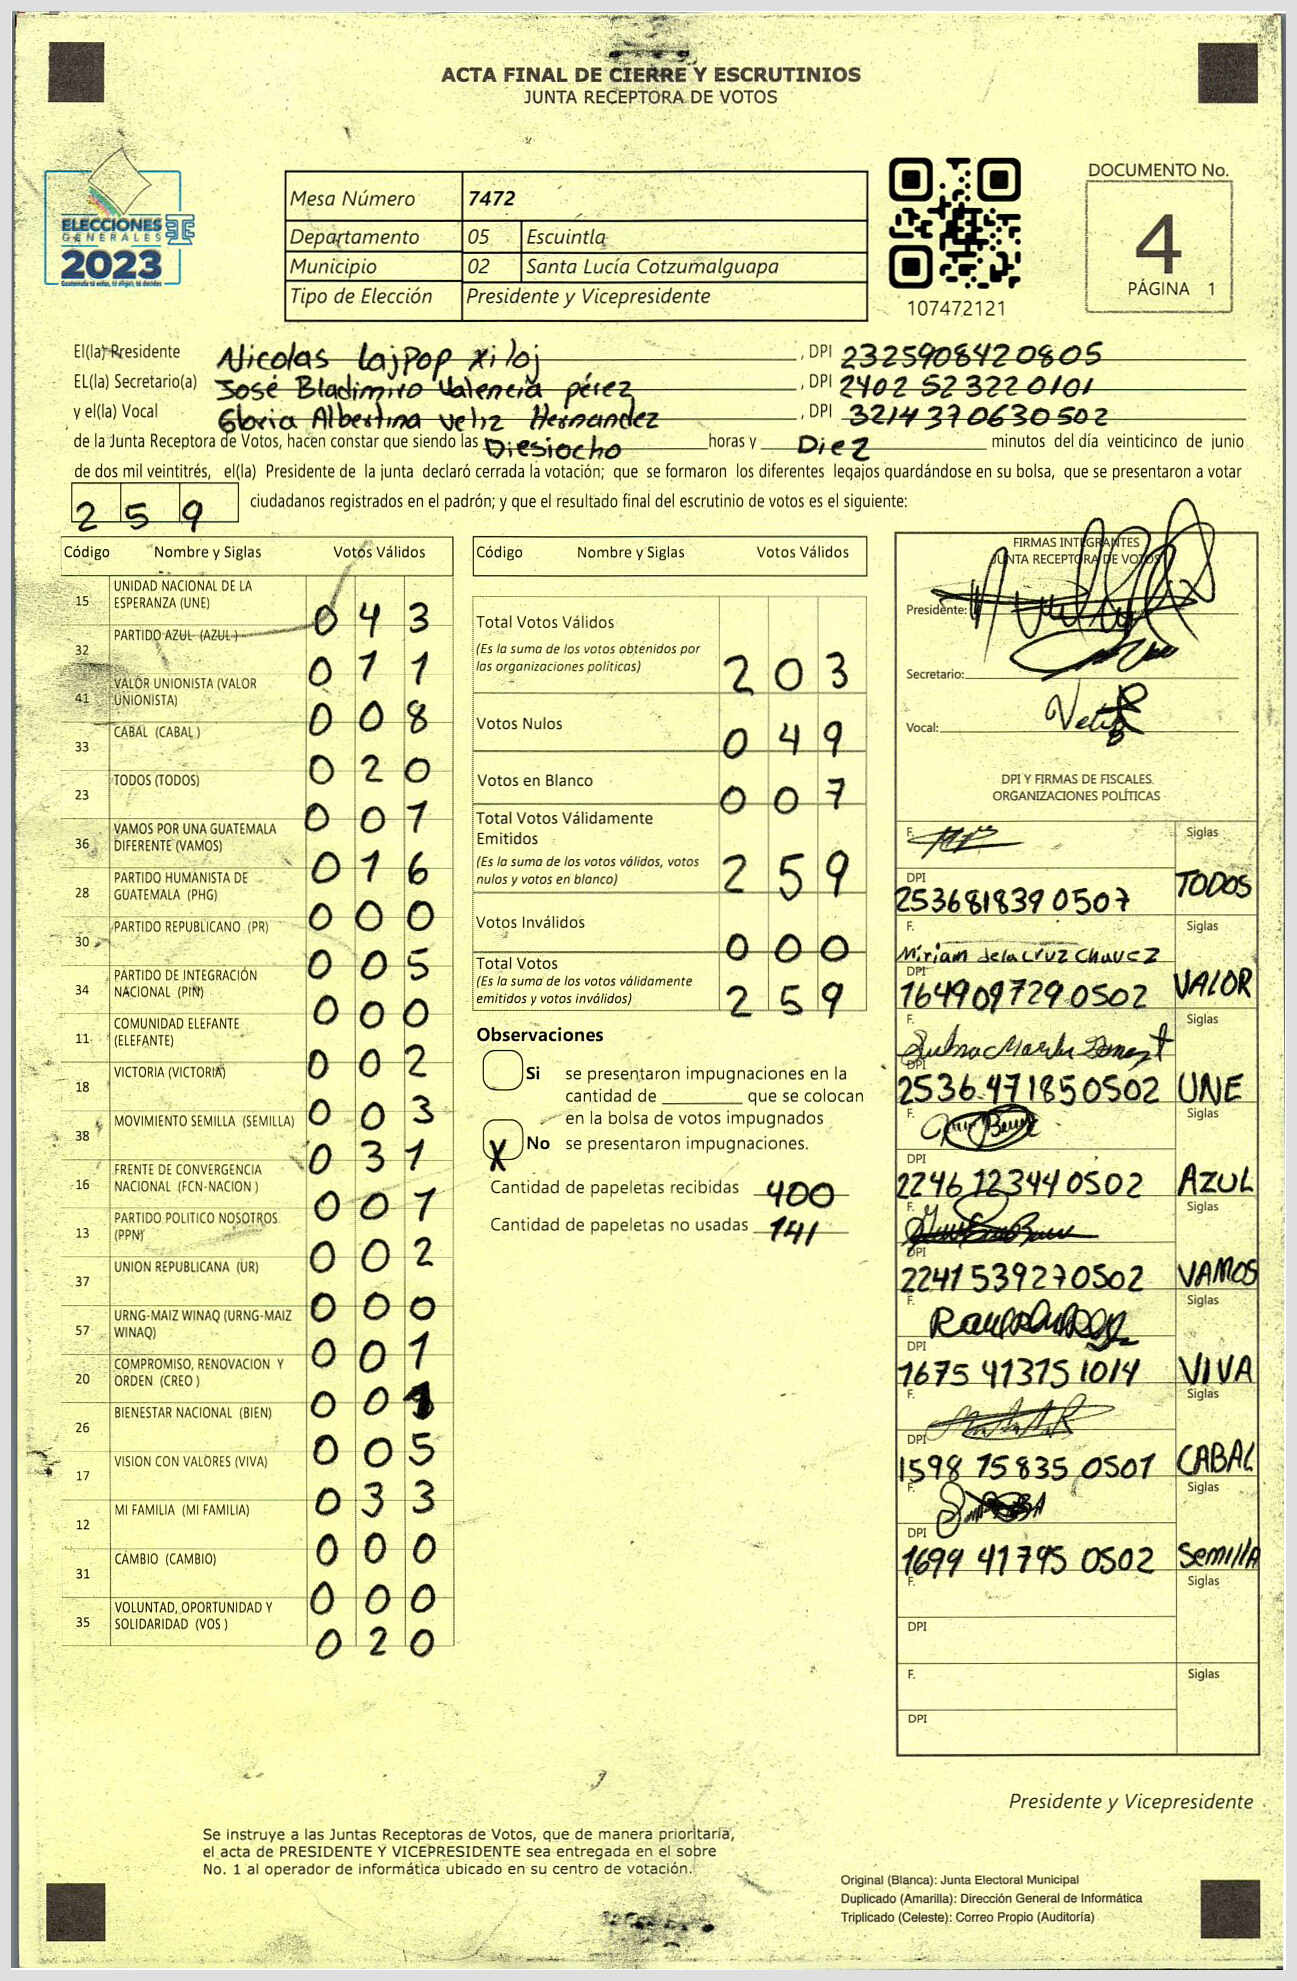 ACTA FINAL DE CIERRE Y ESCRUTINIOS
JUNTA RECEPTORA DE VOTOS
ELECCIONES
GENERALES
2023
Guatemala tú eliges, tú decides
Mesa Número 7472
Departamento 05 Escuintla
Municipio 02 Santa Lucía Cotzumalguapa
Tipo de Elección Presidente y Vicepresidente
107472121
DOCUMENTO No.
4
PÁGINA 1
El(la) Presidente Nicolas Lajpop Xiloj , DPI 2325908420805
EL(la) Secretario(a) José Bladimiro Valencia pérez , DPI 2402 52322 0101
y el(la) Vocal Gloria Albertina Veliz Hernandez , DPI 3214370630502
de la Junta Receptora de Votos, hacen constar que siendo las Diesiocho horas y Diez minutos del día veinticinco de junio
de dos mil veintitrés, el(la) Presidente de la junta declaró cerrada la votación; que se formaron los diferentes legajos quardándose en su bolsa, que se presentaron a votar
259 ciudadanos registrados en el padrón; y que el resultado final del escrutinio de votos es el siguiente:
Código Nombre y Siglas Votos Válidos
15 UNIDAD NACIONAL DE LA ESPERANZA (UNE) 043
32 PARTIDO AZUL (AZUL ) 011
41 VALOR UNIONISTA (VALOR UNIONISTA) 008
33 CABAL (CABAL ) 020
23 TODOS (TODOS) 001
36 VAMOS POR UNA GUATEMALA DIFERENTE (VAMOS) 016
28 PARTIDO HUMANISTA DE GUATEMALA (PHG) 000
30 PARTIDO REPUBLICANO (PR) 005
34 PARTIDO DE INTEGRACIÓN NACIONAL (PIN) 000
11 COMUNIDAD ELEFANTE (ELEFANTE) 002
18 VICTORIA (VICTORIA) 003
38 MOVIMIENTO SEMILLA (SEMILLA) 031
16 FRENTE DE CONVERGENCIA NACIONAL (FCN-NACION ) 001
13 PARTIDO POLITICO NOSOTROS (PPN) 002
37 UNION REPUBLICANA (UR) 000
57 URNG-MAIZ WINAQ (URNG-MAIZ WINAQ) 001
20 COMPROMISO, RENOVACION Y ORDEN (CREO ) 001
26 BIENESTAR NACIONAL (BIEN) 005
17 VISION CON VALORES (VIVA) 033
12 MI FAMILIA (MI FAMILIA) 000
31 CAMBIO (CAMBIO) 000
35 VOLUNTAD, OPORTUNIDAD Y SOLIDARIDAD (VOS ) 020
Código Nombre y Siglas Votos Válidos
Total Votos Válidos
(Es la suma de los votos obtenidos por
las organizaciones políticas) 203
Votos Nulos 049
Votos en Blanco 007
Total Votos Válidamente
Emitidos
(Es la suma de los votos válidos, votos
nulos y votos en blanco) 259
Votos Inválidos 000
Total Votos
(Es la suma de los votos válidamente
emitidos y votos inválidos) 259
Observaciones
Si se presentaron impugnaciones en la
cantidad de ________ que se colocan
en la bolsa de votos impugnados
X No se presentaron impugnaciones.
Cantidad de papeletas recibidas 400
Cantidad de papeletas no usadas 141
FIRMAS INTEGRANTES
JUNTA RECEPTORA DE VOTOS
Presidente:
Secretario:
Vocal:
DPI Y FIRMAS DE FISCALES
ORGANIZACIONES POLÍTICAS
F. Siglas
DPI 253681839 0507 TODOS
F. Miriam delacruz chavez Siglas
DPI 164909729 0502 VALOR
F. Siglas
DPI 2536 47185 0502 UNE
F. Siglas
DPI 2246 12344 0502 AZUL
F. Siglas
DPI 2241 53927 0502 VAMOS
F. Siglas
DPI 1675 41375 1014 VIVA
F. Siglas
DPI 1598 75835 0501 CABAL
F. Siglas
DPI 1699 41795 0502 Semilla
F. Siglas
DPI
F. Siglas
DPI
Presidente y Vicepresidente
Se instruye a las Juntas Receptoras de Votos, que de manera prioritaria,
el acta de PRESIDENTE Y VICEPRESIDENTE sea entregada en el sobre
No. 1 al operador de informática ubicado en su centro de votación.
Original (Blanca): Junta Electoral Municipal
Duplicado (Amarilla): Dirección General de Informática
Triplicado (Celeste): Correo Propio (Auditoría)